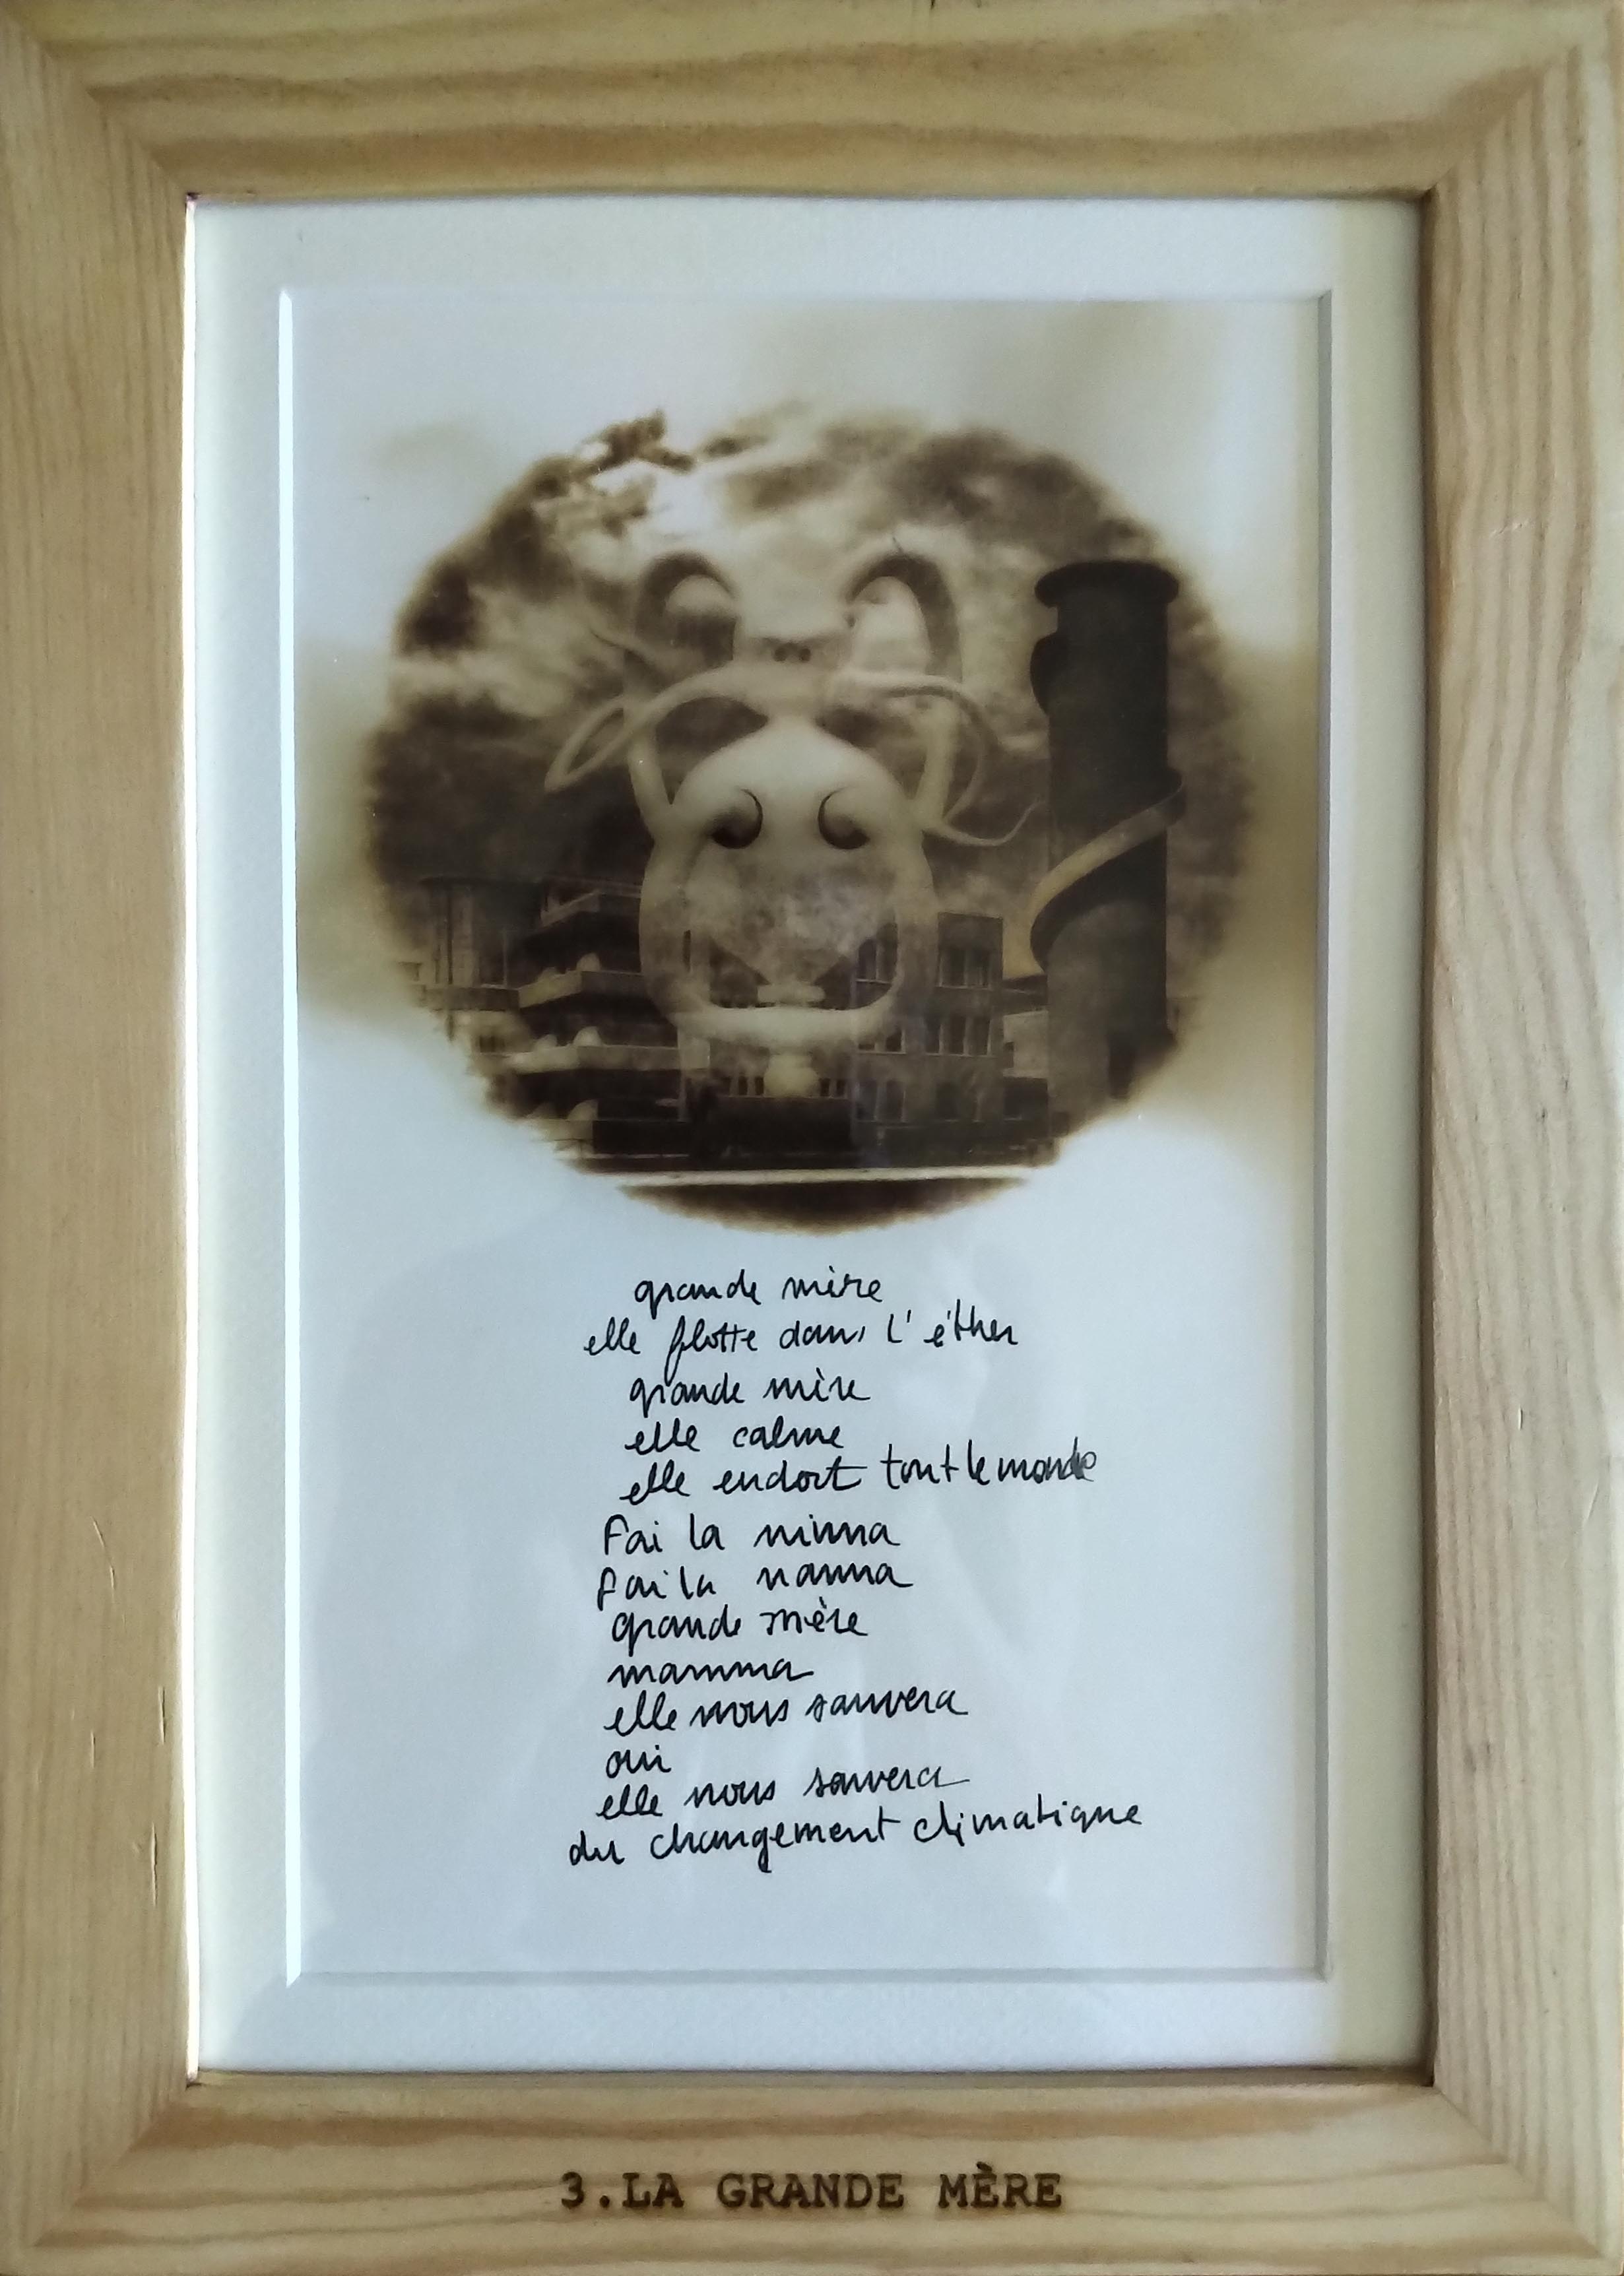 grande mère
elle flotte dans l'éther
grande mère
elle calme
elle endort tout le monde
Fai la ninna
fai la nanna
grande mère
mamma
elle nous sauvera
oui
elle nous sauvera
du changement climatique
3.LA GRANDE MÈRE